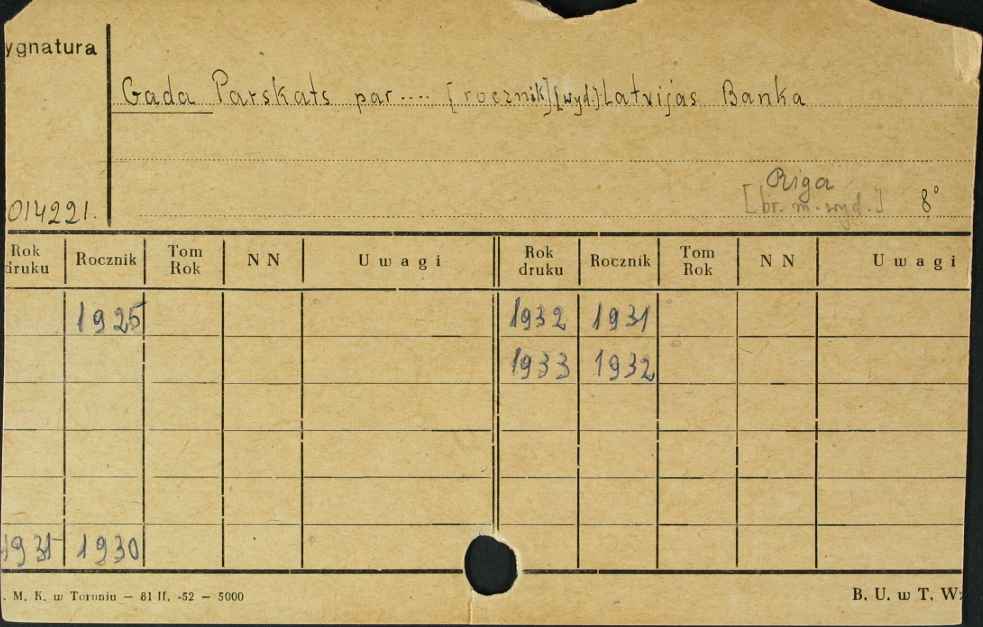 ygnatura
Gada Parskats par .... [rocznik] [wyd.] Latvijas Banka
Riga
[br. m. wyd.] 8°
014221.
Rok druku Rocznik Tom Rok NN Uwagi Rok druku Rocznik Tom Rok NN Uwagi
1925 1932 1931
1933 1932
1931 1930
. M. K. w Toruniu — 81 II. -52 — 5000 B. U. w T. W